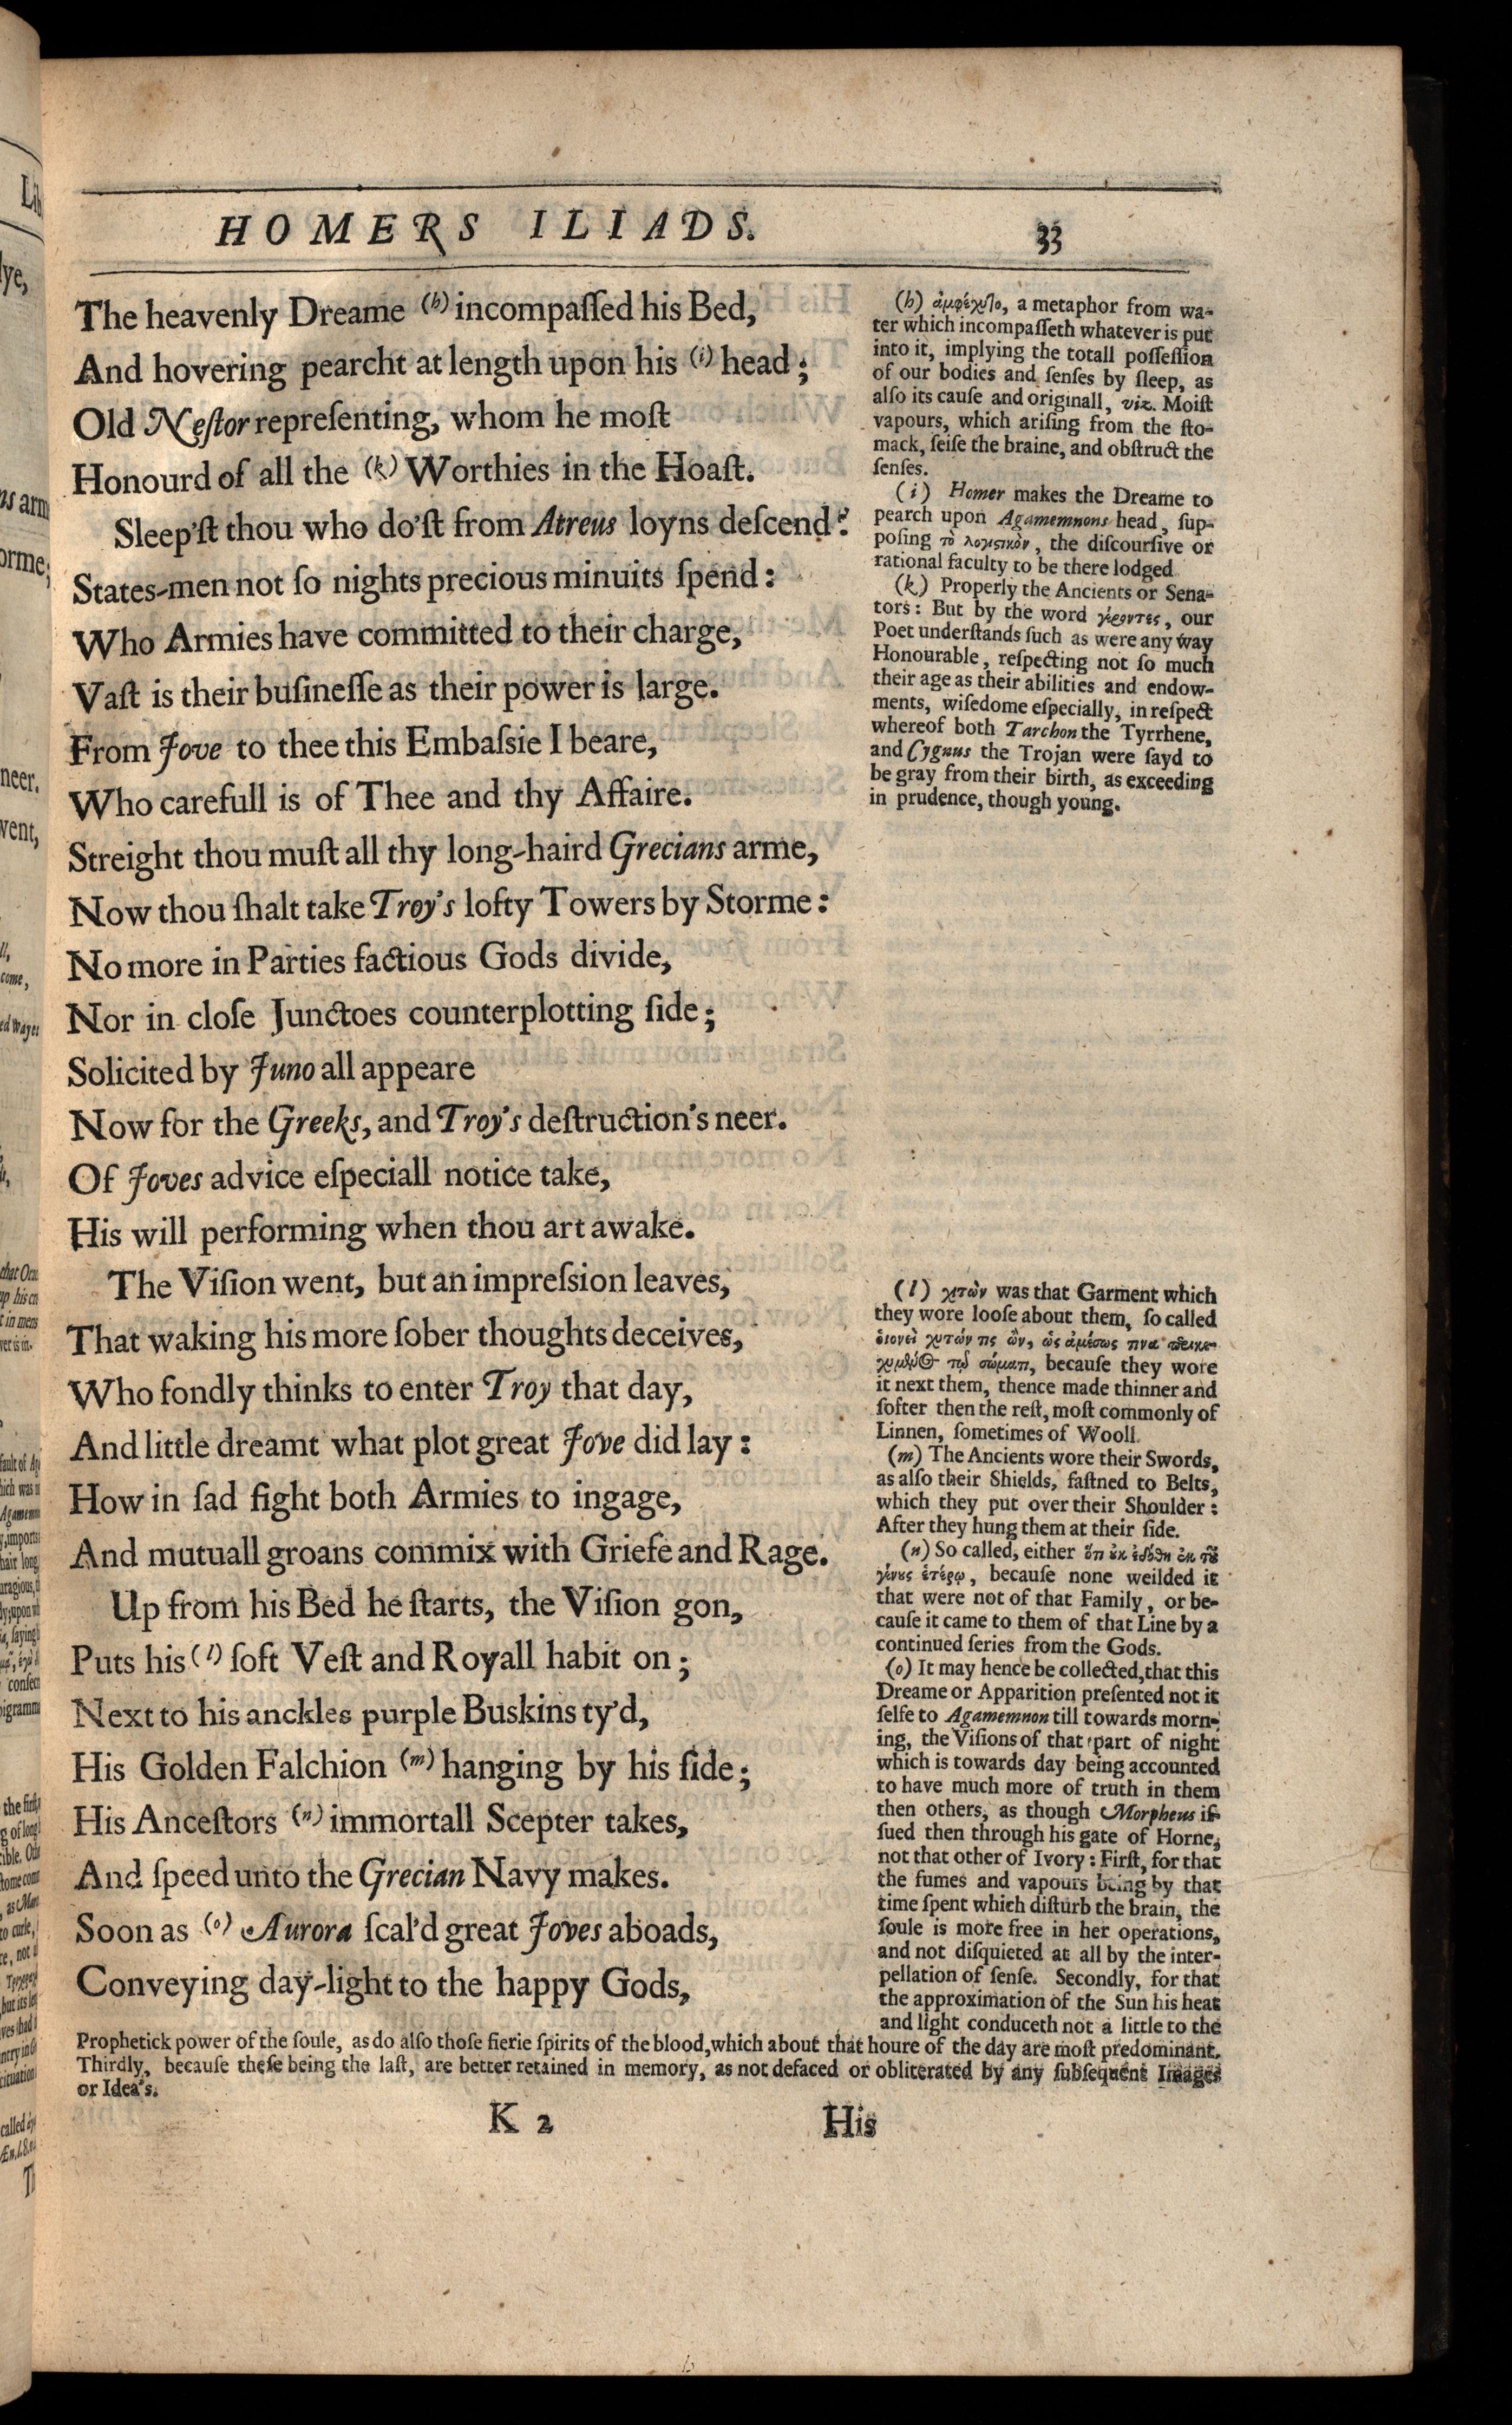 HOMERS ILIADS. 33
The heavenly Dreame (h) incompaſſed his Bed,
And hovering pearcht at length upon his (i) head;
Old Neſtor repreſenting, whom he moſt
Honourd of all the (k) Worthies in the Hoaſt.
Sleep'ſt thou who do'ſt from Atreus loyns deſcend?
States-men not ſo nights precious minuits ſpend:
Who Armies have committed to their charge,
Vaſt is their buſineſſe as their power is large.
From Jove to thee this Embaſsie I beare,
Who carefull is of Thee and thy Affaire.
Streight thou muſt all thy long-haird Grecians arme,
Now thou ſhalt take Troy's lofty Towers by Storme:
No more in Parties factious Gods divide,
Nor in cloſe Junctoes counterplotting ſide;
Solicited by Juno all appeare
Now for the Greeks, and Troy's deſtruction's neer.
Of Joves advice eſpeciall notice take,
His will performing when thou art awake.
The Viſion went, but an impreſsion leaves,
That waking his more ſober thoughts deceives,
Who fondly thinks to enter Troy that day,
And little dreamt what plot great Jove did lay:
How in ſad fight both Armies to ingage,
And mutuall groans commix with Griefe and Rage.
Up from his Bed he ſtarts, the Viſion gon,
Puts his (l) ſoft Veſt and Royall habit on;
Next to his anckles purple Buskins ty'd,
His Golden Falchion (m) hanging by his ſide;
His Anceſtors (n) immortall Scepter takes,
And ſpeed unto the Grecian Navy makes.
Soon as (o) Aurora ſcal'd great Joves aboads,
Conveying day-light to the happy Gods,
(h) ἀμφέχυτο, a metaphor from wa-
ter which incompaſſeth whatever is put
into it, implying the totall poſſeſſion
of our bodies and ſenſes by ſleep, as
alſo its cauſe and originall, viz. Moiſt
vapours, which ariſing from the ſto-
mack, ſeiſe the braine, and obſtruct the
ſenſes.
(i) Homer makes the Dreame to
pearch upon Agamemnons head, ſup-
poſing τὸ λογιστικὸν, the diſcourſive or
rational faculty to be there lodged
(k) Properly the Ancients or Sena-
tors: But by the word γέροντες, our
Poet underſtands ſuch as were any way
Honourable, reſpecting not ſo much
their age as their abilities and endow-
ments, wiſedome eſpecially, in reſpect
whereof both Tarchon the Tyrrhene,
and Cygnus the Trojan were ſayd to
be gray from their birth, as exceeding
in prudence, though young.
(l) χιτὼν was that Garment which
they wore looſe about them, ſo called
because they wore
it next them, thence made thinner and
ſofter then the reſt, moſt commonly of
Linnen, ſometimes of Wooll.
(m) The Ancients wore their Swords,
as alſo their Shields, faſtned to Belts,
which they put over their Shoulder:
After they hung them at their ſide.
(n) So called, either
γένους ἑτέρῳ, becauſe none weilded it
that were not of that Family, or be-
cauſe it came to them of that Line by a
continued ſeries from the Gods.
(o) It may hence be collected, that this
Dreame or Apparition preſented not it
ſelfe to Agamemnon till towards morn-
ing, the Viſions of that part of night
which is towards day being accounted
to have much more of truth in them
then others, as though Morpheus iſ-
ſued then through his gate of Horne,
not that other of Ivory: Firſt, for that
the fumes and vapours being by that
time ſpent which diſturb the brain, the
ſoule is more free in her operations,
and not diſquieted at all by the inter-
pellation of ſenſe. Secondly, for that
the approximation of the Sun his heat
and light conduceth not a little to the
Prophetick power of the ſoule, as do alſo thoſe fierie ſpirits of the blood, which about that houre of the day are moſt predominant.
Thirdly, becauſe theſe being the laſt, are better retained in memory, as not defaced or obliterated by any ſubſequent Images
or Idea's.
K 2 His